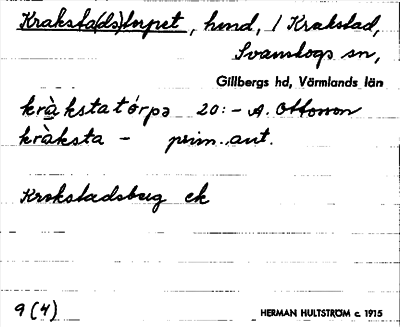 Kraksta(ds)torpet, hmd, / Krakstad,
Svanskogs sn,
Gillbergs hd, Värmlands län
kràkstatórpə 20:- A. Ottosson
kràksta - prim. aut.
Krokstadsbrug ek
9 (4) HERMAN HULTSTRÖM c. 1915